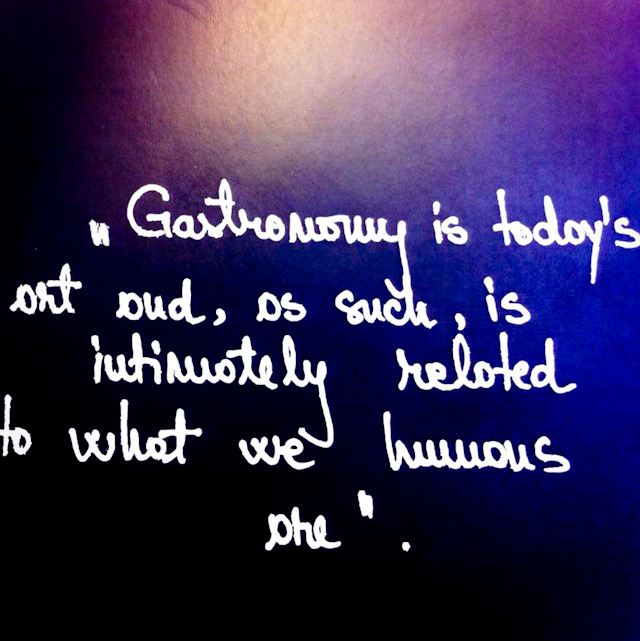 "Gastronomy is today's
art and, as such, is
intimately related
to what we humans
are".